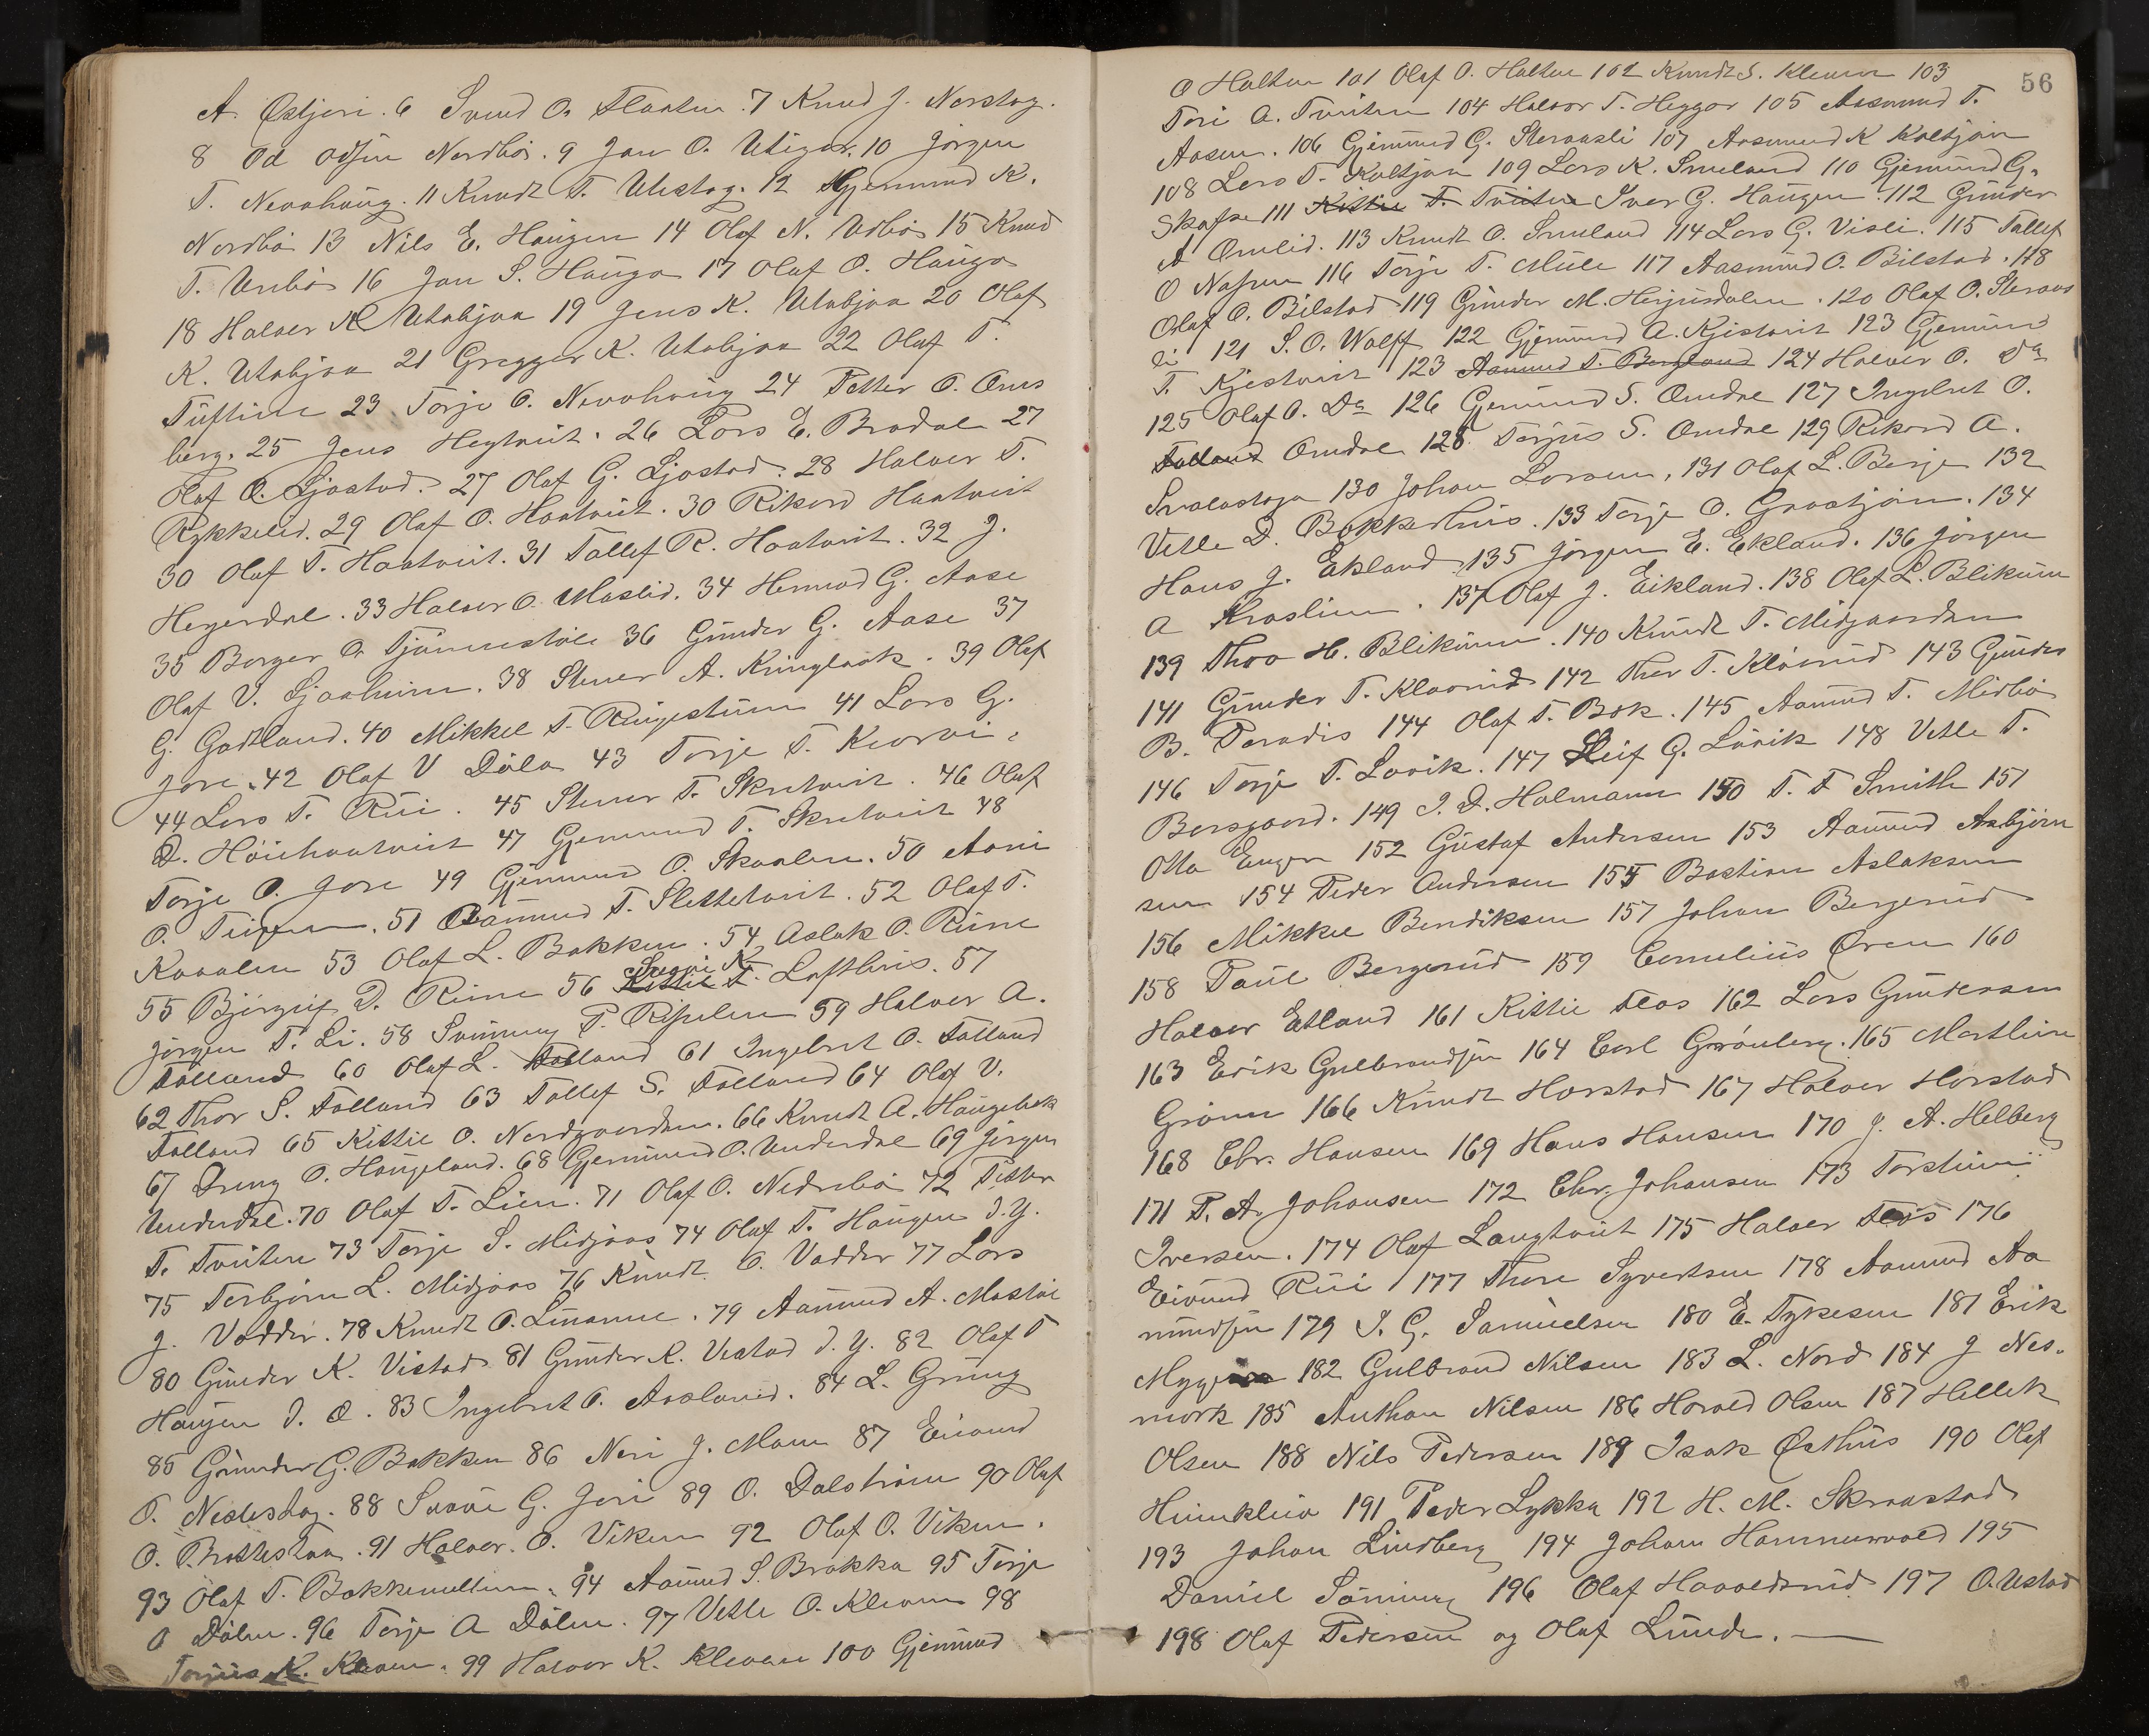 A. Østjori. 6 Svend O. Flaaten. 7 Knud J. Norstog.
8 Od Odsen Nordbö. 9 Jon O. Utigar. 10 Jörgen
T. Nevahaug. 11 Knudt T. Utistog. 12 Gjermund K.
Nordbö 13 Nils E. Haugen 14 Olaf N. Udbö 15 Knud
T. Unbö 16 Jon S. Hauga 17 Olaf O. Hauga
18 Halver K Utabjaa 19 Jens K. Utabjaa 20 Olaf
K. Utabjaa 21 Gregger K. Utabjaa 22 Olaf T.
Tuftine 23 Torje O. Nevahaug 24 Petter O. Oms
berg. 25 Jens Hegtveit. 26 Lars E. Bradal 27
Olaf O. Ljostad. 27 Olaf G. Ljostad. 28 Halver T.
Rykkelid. 29 Olaf O. Haatveit. 30 Rikard Haatveit
30 Olaf T. Haatveit. 31 Tallef R. Haatveit. 32 J.
Hegerdal. 33 Halvor O. Utaslid. 34 Hermod G. Aase
35 Borger O. Tjönnestöle 36 Gunder G. Aase 37
Olaf V. Ljosheim. 38 Stener A. Kringlaak. 39 Olaf
G. Godtland. 40 Mikkel T. Ringestuun 41 Lars G.
Jore. 42 Olaf V Döla 43 Torje T. Kvorvi.
44 Lars T. Rui. 45 Stener T. Skretveit. 46 Olaf
D. Höiehaatveit 47 Gjermund T. Skretveit 48
Torje O. Jore 49 Gjermund O. Skaalen. 50 Aani
O. 51 Aamund T. Slettetveit. 52 Olaf T.
Kaaalen 53 Olaf L. Bakken. 54 Aslak O. Rune
55 Björguf D. Rune 56 Kittil T. Svani K Lofthus. 57
Jörgen T. Li. 58 Svinung T. Rislen 59 Halver A.
Tolland 60 Olaf L. Folland 61 Ingebret O. Folland
62 Thor S. Folland 63 Tallef S. Folland 64 Olaf V.
Folland 65 Kittil O. Nordgaarden. 66 Knudt A. Haugebak
67 Dreng O. Haugeland. 68 Gjermund O. Underdal 69 Jörgen
Underdal. 70 Olaf T. Lien. 71 Olaf O. Nedrebö 72 Petter
T. Tveiten 73 Torje S. Midjaas 74 Olaf T. Haugen d.y.
75 Torbjörn L. Midjaas 76 Knudt O. Vadder 77 Lars
J. Vadder. 78 Knudt O. Linanne. 79 Aamund A. Mostöi
80 Gunder K. Vistad 81 Gunder K. Vistad d.y. 82 Olaf T
Haugen d. æ. 83 Ingebret O. Aasland. 84 L. Grung
85 Gunder G. Bakken 86 Neri J. Moen 87 Eivind
O. Nedlestog. 88 Svani G. Jori 89 O. Dalström 90 Olaf
O. Brattestaa. 91 Halver. O. Viken 92 Olaf O. Viken.
93 Olaf T. Bakkemellum. 94 Aamund S. Brakka 95 Torje
O Dölen. 96 Torje A Dölen. 97 Vetle O. Kleven 98
Torjus K. Kleven. 99 Halvor K. Kleven 100 Gjermund
56
O Holten 101 Olaf O. Holten 102 Knudt S. Kleven 103
Tori A. Tveiten 104 Halvor T. Heggor 105 Aasmund T.
Aasen. 106 Gjermund G. Steraasli 107 Aasmund K Koltjön
108 Lars T. Koltjön 109 Lars K. Smeland 110 Gjermund G.
Skafse 111 Kittil T. Tveiten Iver G. Haugen. 112 Gunder
A Omlid. 113 Knudt O. Smeland 114 Lars G. Visli. 115 Tallef
O Napen 116 Torje T. Mule 117 Aasmund O. Bilstad. 118
Olaf O. Bilstad 119 Gunder M. Herjusdalen. 120 Olaf O. Steraas
li 121 S. O. Wolff 122 Gjermund A. Kjistveit 123 Gjermund
T. Kjestveit 123 Aamund T. Bergland 124 Halver O. Do
125 Olaf O. Do 126 Gjermund S. Omdal 127 Ingebret O.
Folland Omdal 128 Torjus S. Omdal 129 Rikard A.
Svalastoga 130 Johan Larsen. 131 Olaf L. Berje 132
Vetle D. Bakkehus. 133 Torje O. Graatjön. 134
Hans J. Ekland 135 Jörgen E. Ekland. 136 Jörgen
A Kraslien. 137 Olaf J. Eikland. 138 Olaf L. Blikum
139 Thor H. Blikum. 140 Knudt T. Midgaarden
141 Gunder T. Klovrud 142 Thor T. Klövrud 143 Gunder
B. Paradis 144 Olaf T. Bök. 145 Aamund T. Midbö
146 Torje T. Lövik. 147 Leif G. Lövik 148 Vetle T.
Borsgaard. 149 J. D. Halmann 150 T. T Smith 151
Otto Engen 152 Gustaf Andersen 153 Aamund Asbjörn
sen 154 Peder Andersen 155 Bastian Aslaksen
156 Mikkel Bendiksen 157 Johan Bergerud
158 Paul Bergerud 159 Cornelius Øren 160
Halver Etland 161 Kittil Flos 162 Lars Gundersen
163 Erik Gulbrandsen 164 Carl Grönberg. 165 Marthin
Grönn 166 Knudt Harstad 167 Halver Harstad
168 Chr. Hansen 169 Hans Hansen 170 J. A. Helberg
171 P. A. Johansen 172 Chr. Johansen 173 Torstein
Iversen. 174 Olaf Langtveit 175 Halver Flos 176
Eivind Rui 177 Thore Syvertsen 178 Aamund Aa
mundsen 179 S. G. Samuelsen 180 E. Tykesen 181 Erik
182 Gulbrand Nilsen 183 L. Nord 184 J Nes-
mork 185 Anthon Nilsen 186 Harald Olsen 187 Hellek
Olsen 188 Nils Pedersen 189 Isak Østhus 190 Olaf
Heimkleiv 191 Peder Lykke 192 H. M. Skraastad
193 Johan Lindberg 194 Johan Hammervold 195
Daniel Sönning 196 Olaf Havoldsrud 197 O. Ustad
198 Olaf Pedersen og Olaf Lunde. —